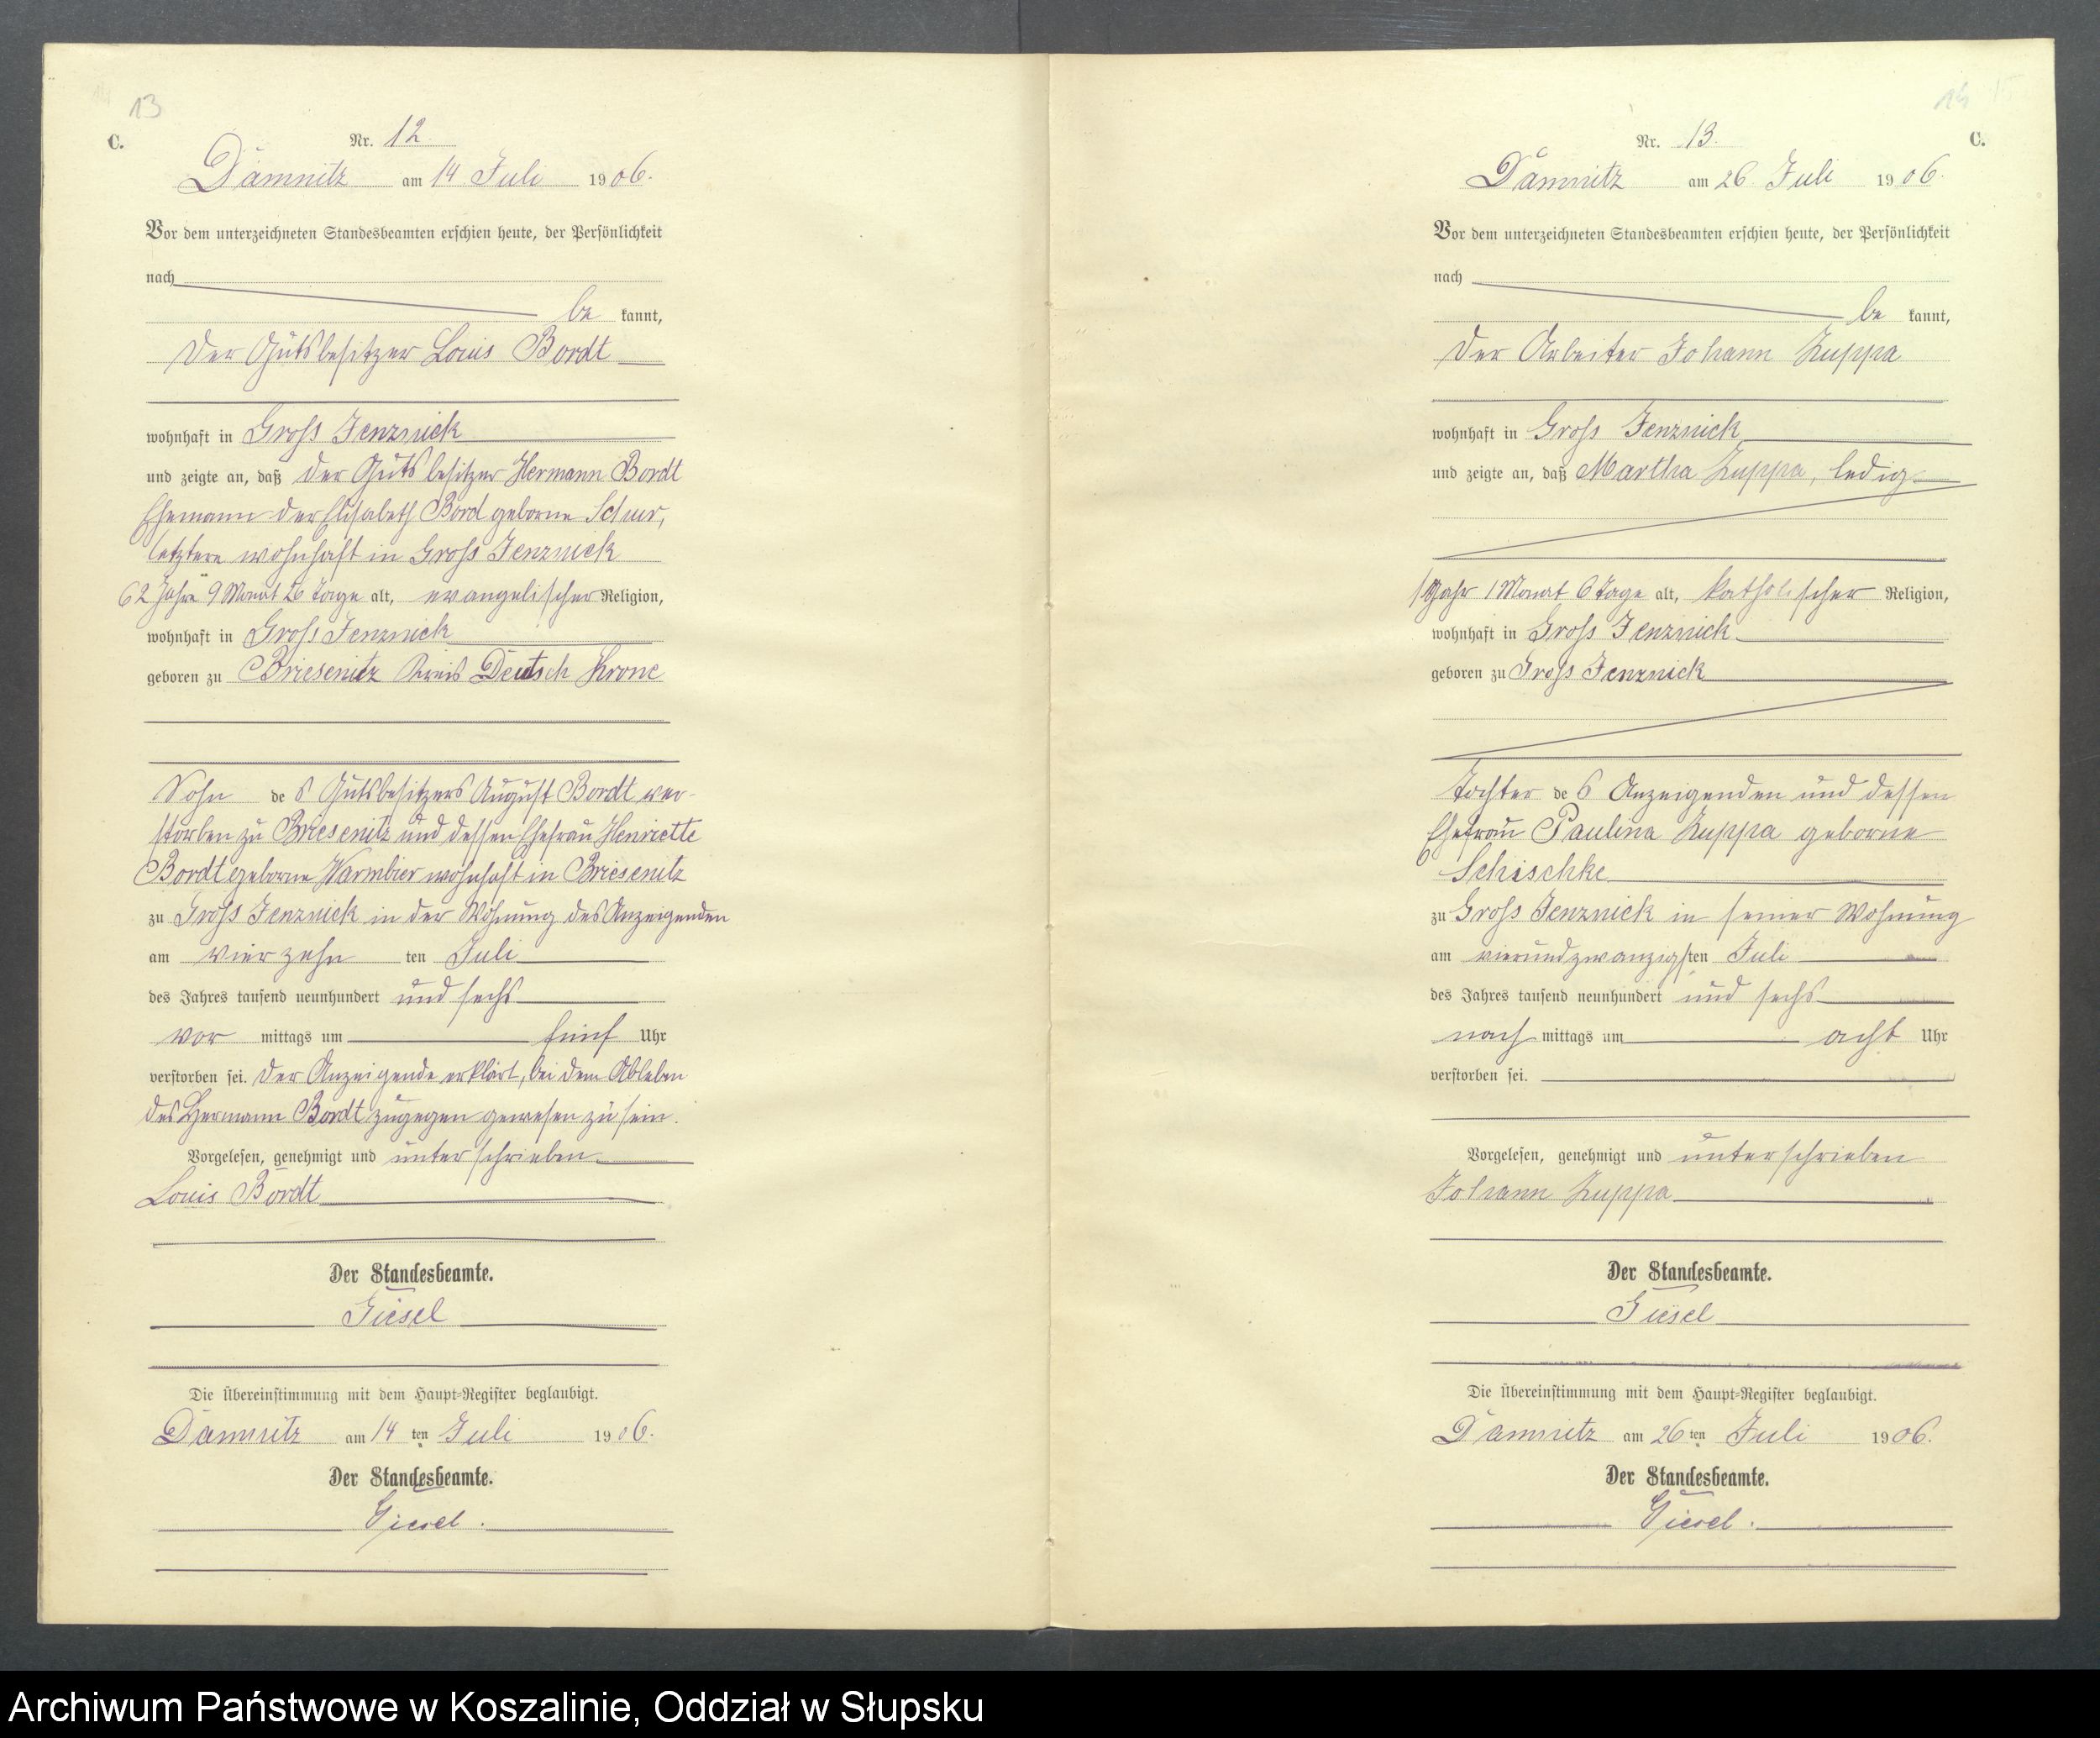 13
C.
Nr. 12
Damnitz am 14 Juli 1906.
Vor dem unterzeichneten Standesbeamten erschien heute, der Persönlichkeit
nach
be kannt,
der Gutsbesitzer Louis Bordt
wohnhaft in Gross Jenznick
und zeigte an, daß der Gutsbesitzer Hermann Bordt
Ehemann der Elisabeth Bord geborne
letztere wohnhaft in Gross Jenznick
62 Jahre 9 Monat 26 Tage alt, evangelischer Religion,
wohnhaft in Gross Jenznick
geboren zu Briesenitz Kreis Deutsch Krone
Sohn des Gutsbesitzers August Bordt ver-
storben zu Briesenitz und dessen Ehefrau Henriette
Bordt geborne Warmbier wohnhaft in Briesenitz
zu Gross Jenznick in der Wohnung des Anzeigenden
am vierzehn ten Juli
des Jahres tausend neunhundert und sechs
vor mittags um fünf Uhr
verstorben sei. Der Anzeigende erklärt, bei dem Ableben
des Hermann Bordt zugegen gewesen zu sein.
Vorgelesen, genehmigt und unterschrieben
Louis Bordt
Der Standesbeamte.
Giesel
Die Übereinstimmung mit dem Haupt-Register beglaubigt.
Damnitz am 14 ten Juli 1906.
Der Standesbeamte.
Giesel.
14
C.
Nr. 13.
Damnitz am 26 Juli 1906.
Vor dem unterzeichneten Standesbeamten erschien heute, der Persönlichkeit
nach
be kannt,
der Arbeiter Johann Zuppa
wohnhaft in Gross Jenznick
und zeigte an, daß Martha Zuppa, ledig
1 Jahr 1 Monat 6 Tage alt, katholischer Religion,
wohnhaft in Gross Jenznick
geboren zu Gross Jenznick
Tochter des Anzeigenden und dessen
Ehefrau Paulina Zuppa geborne
Schischke
zu Gross Jenznick in seiner Wohnung
am vierundzwanzigsten Juli
des Jahres tausend neunhundert und sechs
nach mittags um acht Uhr
verstorben sei.
Vorgelesen, genehmigt und unterschrieben
Johann Zuppa
Der Standesbeamte.
Giesel
Die Übereinstimmung mit dem Haupt-Register beglaubigt.
Damnitz am 26 ten Juli 1906.
Der Standesbeamte.
Giesel.
Archiwum Państwowe w Koszalinie, Oddział w Słupsku